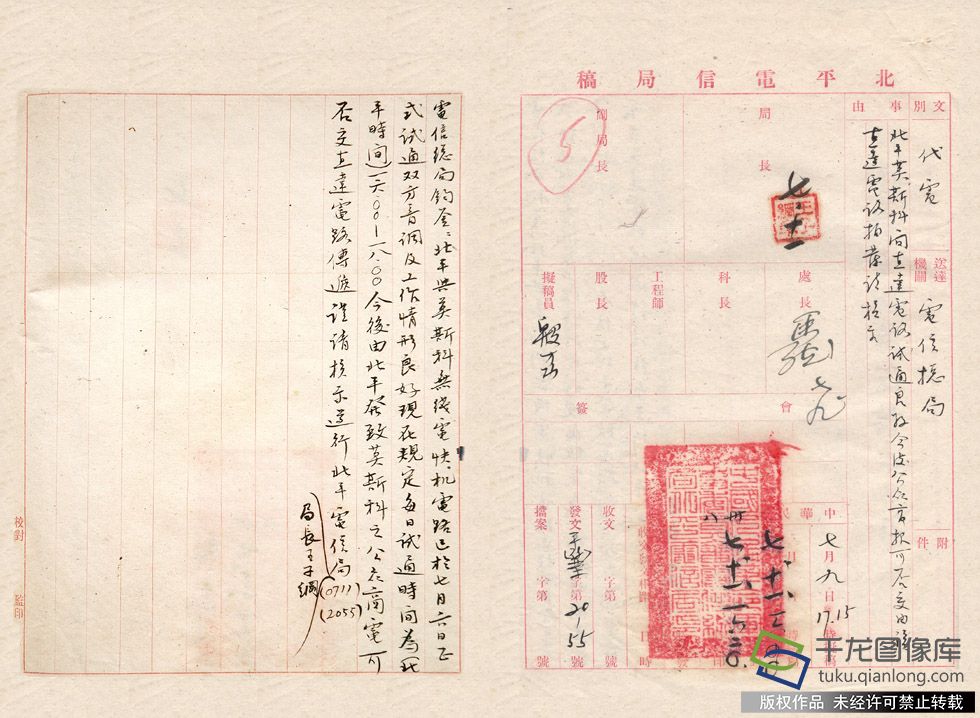 北平電信局稿
文別
代電
送達機關
電信總局
附件
事由
北平莫斯科間直達電路試通良好今後公众商報可否交由該
直達電路拍發請核示
局長
七、十一
副局長
5
處長
七九
科長
工程師
股長
擬稿員
會
簽
中華民
七月九日17.15
七 十一
卅八 七 十一
收文
字第
號
發文
字第
2055
號
檔案
字第
號
電信總局鈞鑒：北平與莫斯科無线電快机電路已於七月六日正
式試通双方音調及工作情形良好現在規定每日試通時間為(北
平時間)一六〇〇—一八〇〇今後由北平發致莫斯科之公众商電可
否交直達電路傳遞謹請核示遵行北平電信局
局長王子綱
(0711)
(2055)
校對
監印
千龙图像库
tuku.qianlong.com
版权作品 未经许可禁止转载